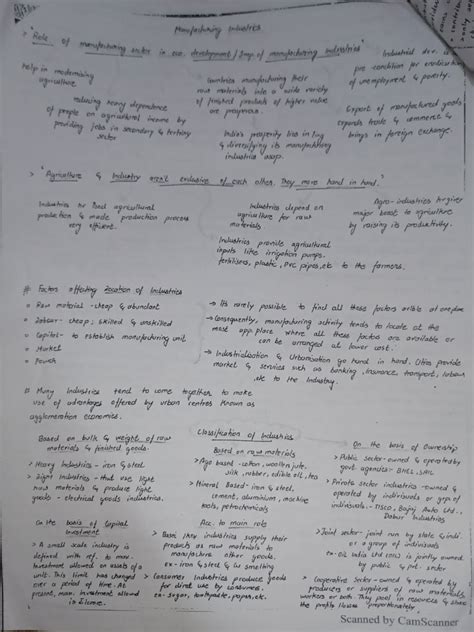 Manufacturing Industries
"Role of manufacturing sector in eco. development / Imp. of manufacturing industries"
Help in modernising
agriculture
reducing heavy dependence
of people on agricultural income by
providing jobs in secondary & tertiary
sector
Countries manufacturing their
raw materials into a wide variety
of finished products of higher value
are prosperous.
India's prosperity lies in
& diversifying its manufacturing
industries asap.
Industrial dev. is
pre condition for eradication
of unemployment & poverty.
Export of manufactured goods
expands trade & commerce &
brings in foreign exchange.
> "Agriculture & Industry aren't exclusive of each other. They move hand in hand."
Industries
agricultural
production & made production process
very efficient.
Industries depend on
agriculture for raw
materials
Industries provide agricultural
inputs like irrigation pumps,
fertilisers, plastic, PVC pipes, etc to the farmers.
Agro-industries
major boost to agriculture
by raising its productivity.
# Factors affecting Location of Industries
Raw material - cheap & abundant
Labour - cheap; skilled & unskilled
Capital - to establish manufacturing unit
Market
Power
→ It's rarely possible to find all these factors available at one place
→ Consequently, manufacturing activity tends to locate at the
most app. place where all these factors are available or
can be arranged at lower cost.
→ Industrialisation & Urbanisation go hand in hand. Cities provide
market & services such as banking, insurance, transport, labour,
etc to the Industry.
Many Industries tend to come together to make
use of advantages offered by urban centres known as
agglomeration economies.
Classification of Industries
Based on bulk & weight of raw
materials & finished goods.
> Heavy Industries - iron & steel
> Light Industries - that use light
raw materials & produce light
goods - electrical goods industries.
Based on raw materials
> Agro based - cotton, woollen, jute,
silk, rubber, edible oil, tea
> Mineral Based - iron & steel,
cement, aluminium, machine
tools, petrochemicals
On the basis of Ownership
> Public sector - owned & operated by
govt agencies - BHEL, SAIL
> Private sector industries - owned &
operated by individuals or grp of
individuals - TISCO, Bajaj Auto Ltd.,
Dabur Industries
> Joint sector - joint run by state & indi
or a group of individuals
ex- Oil India Ltd (OIL) is jointly owned
by public & pvt. sector
> Cooperative Sector - owned & operated by
producers or suppliers of raw materials,
workers or both. They pool in resources & share
the profits/losses proportionately.
On the basis of Capital
Investment
> A small scale industry is
defined with ref. to max.
Investment allowed on assets of a
unit. This limit has changed
over a period of time. At
present, max. investment allowed
is 1 crore.
Acc. to main role
> Basic
industries supply their
products as raw materials to
manufacture other goods.
ex- iron & steel & cu smelting
> Consumer Industries produce goods
for direct use by consumers.
ex- sugar, toothpaste, paper, etc.
Scanned by CamScanner